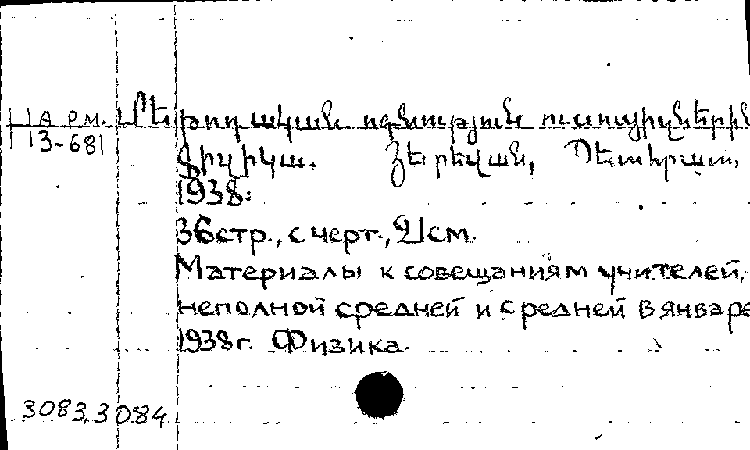 Арм. Մեթոդական օգնություն ուսուցիչներին
13-681 Ֆիզիկա. Յերեվան, Պետհրատ.
1938:
36стр., с черт., 21см.
Материалы к совещаниям учителей,
неполной средней и средней в январе
1938г. Физика.
3083, 3084